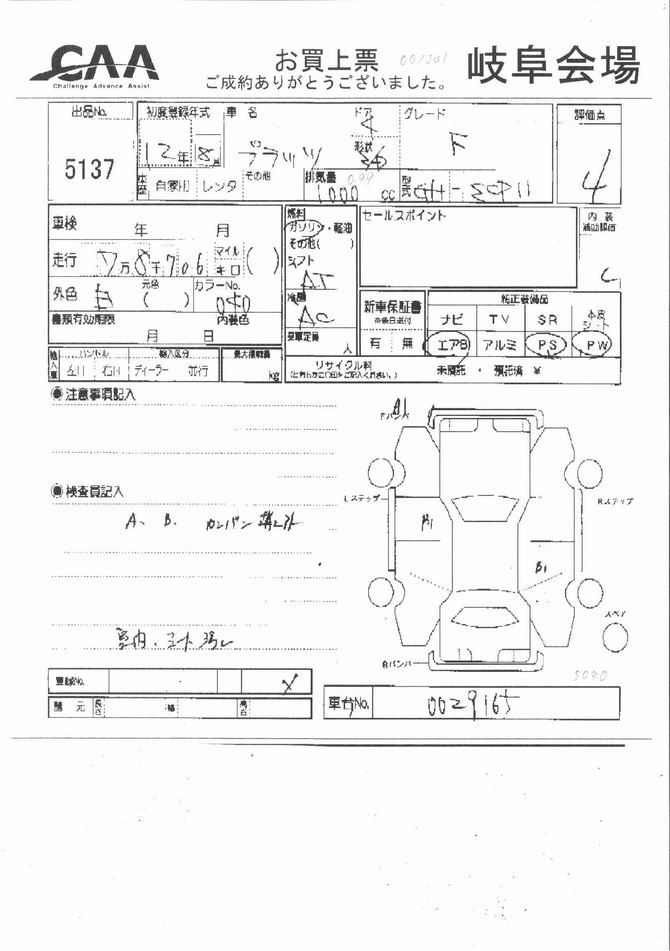 CAA
Challenge Advance Assist
お買上票
ご成約ありがとうございました。
岐阜会場
出品No.
5137
初度登録年式
12年8月
車名
プラッツ
ドア
4
形状
グレード
F
評価点
4
車歴
自家用 レンタ
その他
排気量 0.99
1000 cc
型式
GH-SCP11
車検 年 月
走行 7万8千706 マイル キロ ( )
外色 白 元色 ( ) カラーNo. 040
書類有効期限 月 日 内装色
燃料
ガソリン・軽油
その他( )
シフト
AT
冷房
AC
乗車定員 人
セールスポイント
内装
補助評価
C
新車保証書
※後日送付
有 無
純正装備品
ナビ TV SR 本皮シート
エアB アルミ PS PW
輸入車
ハンドル 輸入区分
左H 右H ディーラー 並行
最大積載量
kg
リサイクル料
未預託・預託済 ¥
注意事項記入
検査員記入
A. B.
Fバンパ
A1
Lステップ
Rステップ
B1
B1
スペア
Rバンパ
5040
登録No.
諸元 長さ 幅 高さ
車台No.
0029165